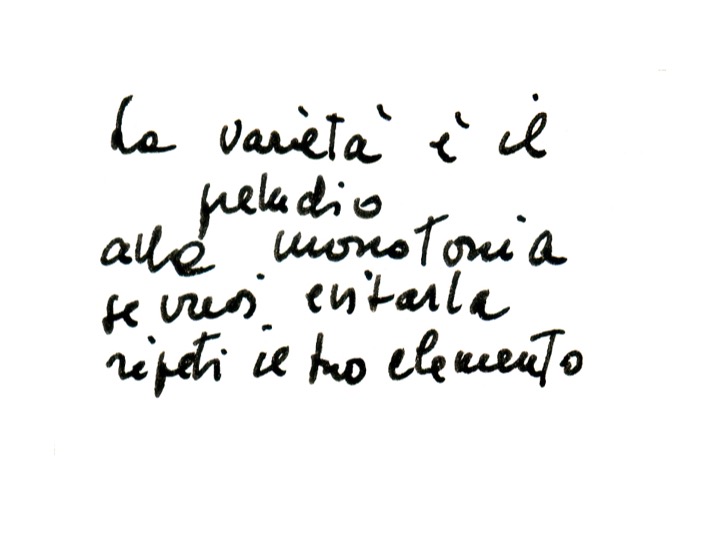 La varietà è il
preludio
alla monotonia
se vuoi evitarla
ripeti il tuo elemento